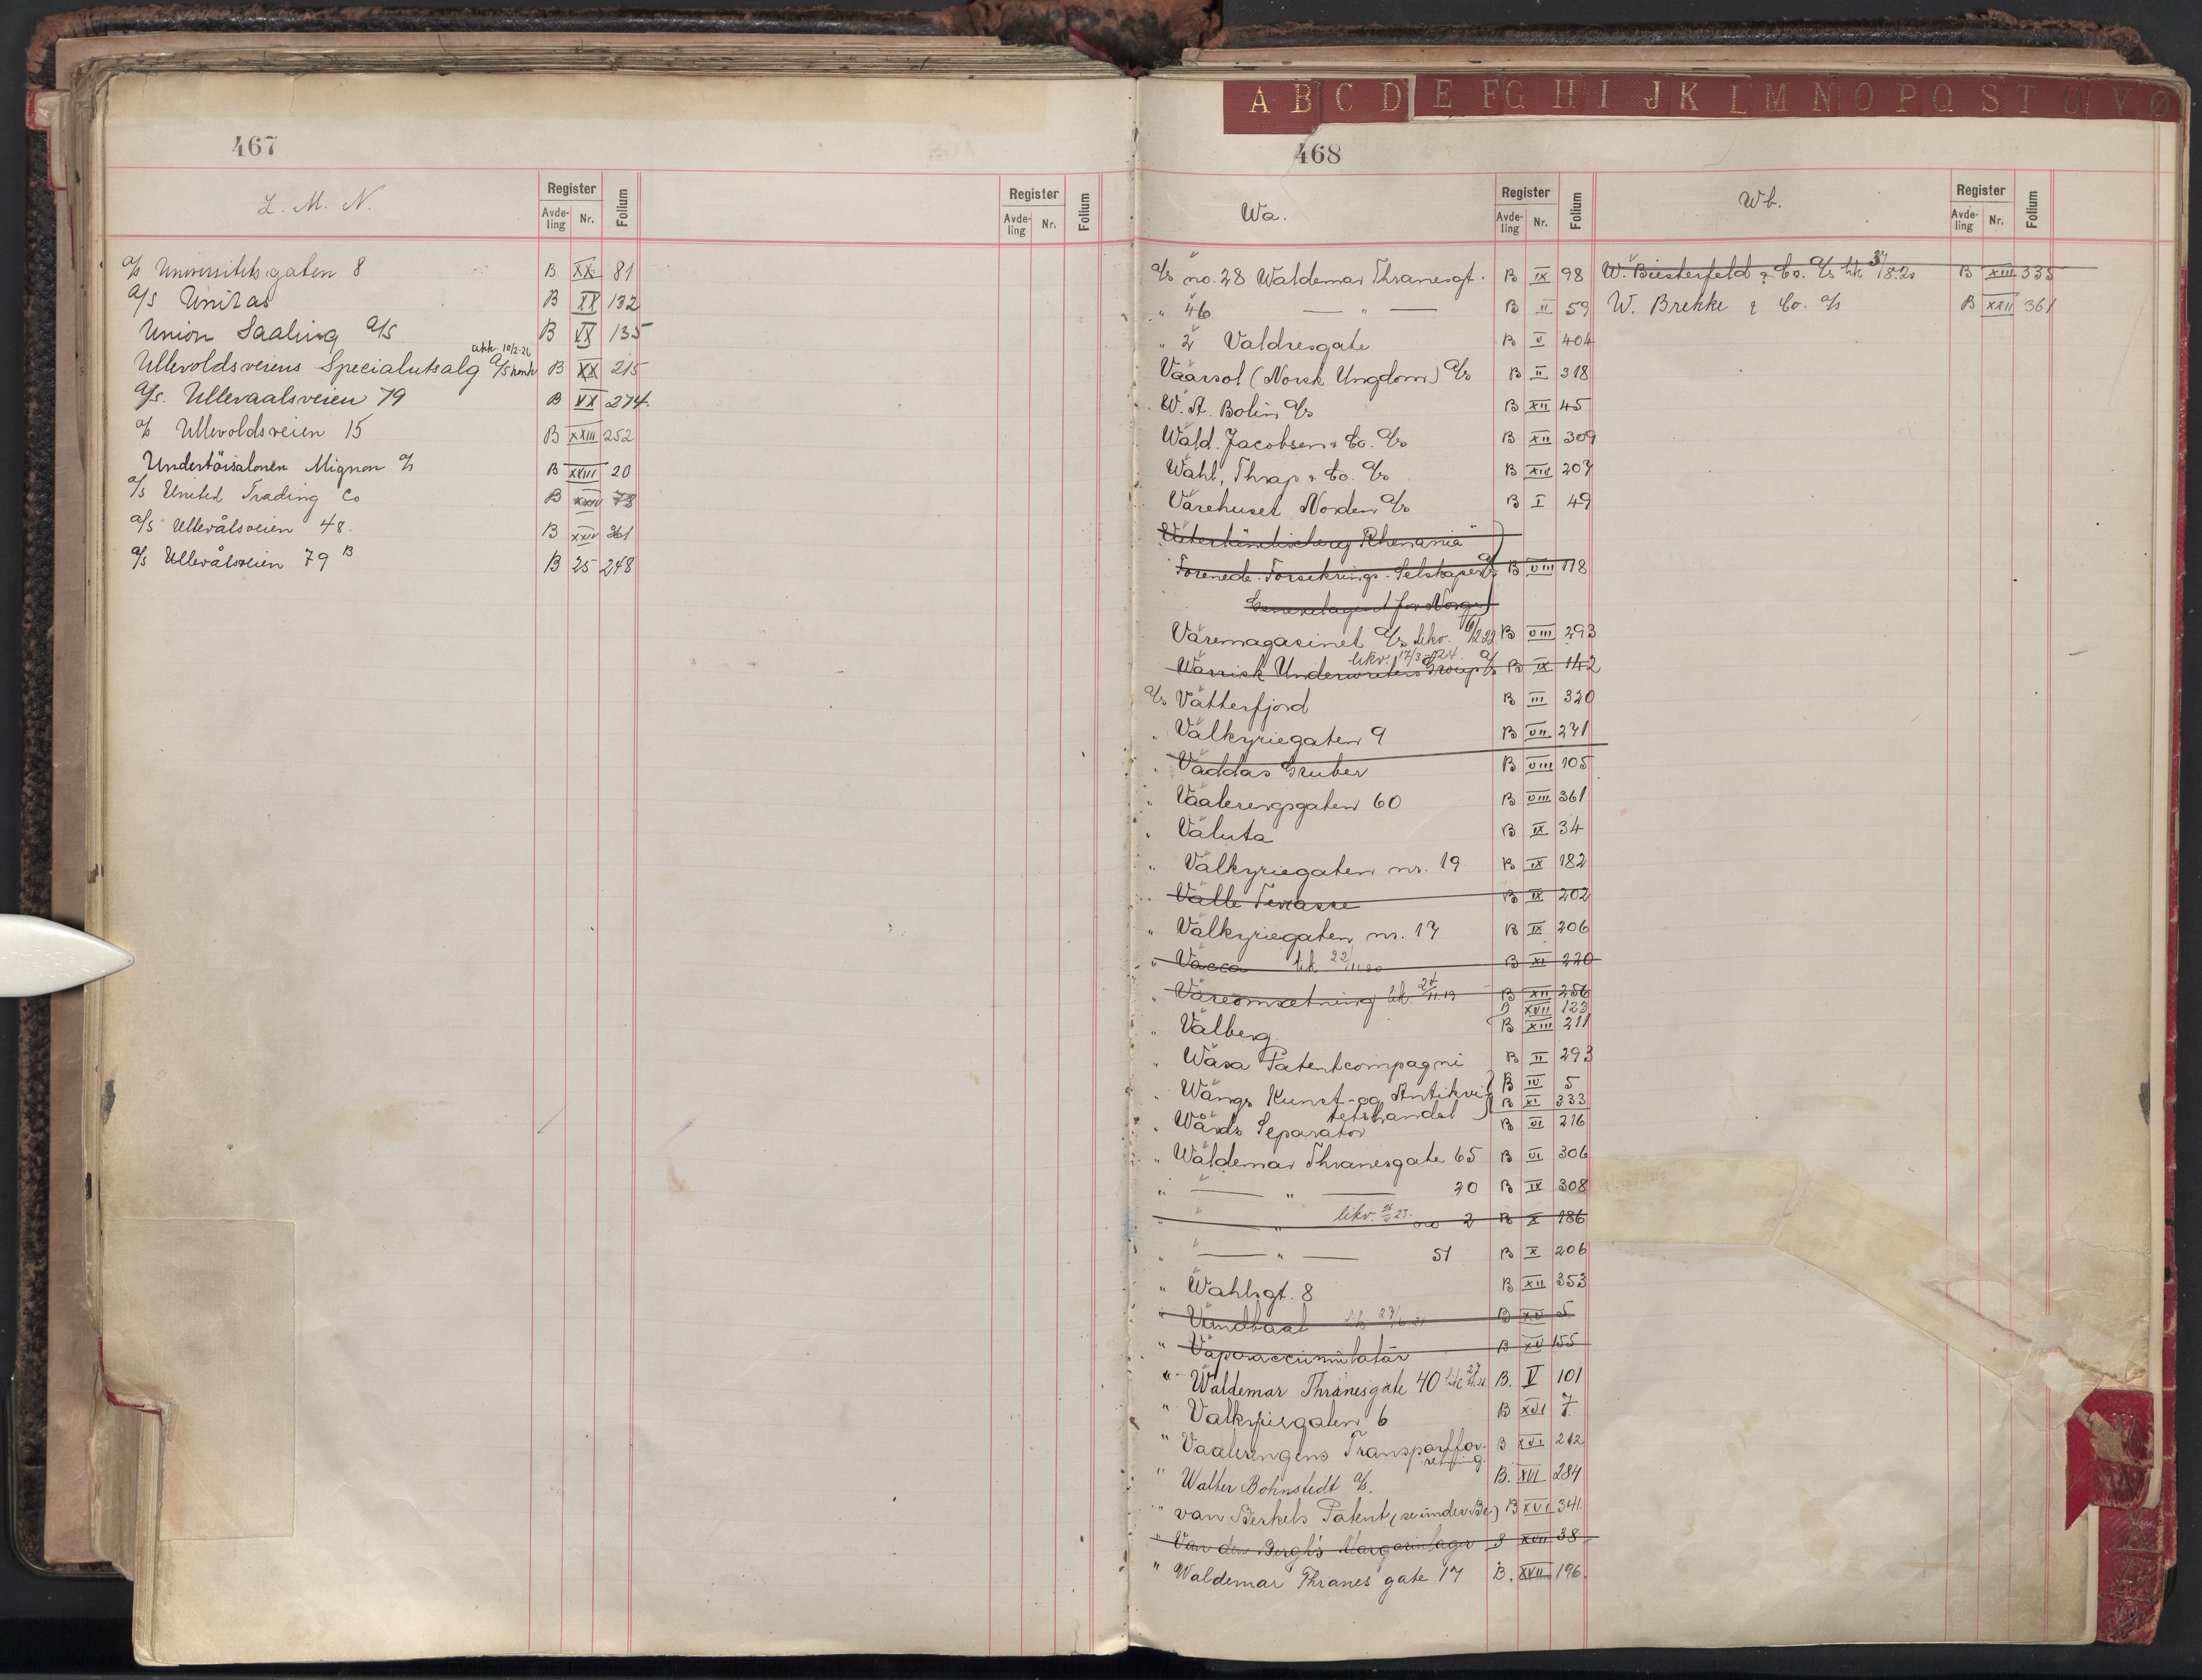 467
L. M. N.
Register
Avde-
ling
Nr.
Folium
Register
Avde-
ling
Nr.
Folium
A/S Universitetsgaten 8 B XX 81
A/S Unitas B XX 132
Union Saaling A/S B XX 135
akk. 10/2-26
Ullevoldsveiens Specialutsalg A/S konk B XX 215
A/S. Ullevaalsveien 79 B XX 274.
A/S Ullevoldsveien 15 B XXIII 252
Undertöisalonen Mignon A/S B XVIII 20
A/S United Trading Co B XXIV 78
A/S Ullevålsveien 48. B XXIV 361
A/S Ullevålsveien 79 B B 25 248
A B C D E F G H I J K L M N O P Q S T U V Ø
468
Wa.
Register
Avde-
ling
Nr.
Folium
Wb.
Register
Avde-
ling
Nr.
Folium
A/S no. 28 Waldemar Thranesgt. B IX 98
" 46 — " — B II 59
" 2 Valdresgate B V 404
Vaarsol (Norsk Ungdom) A/S B II 318
W. A. Bolin A/S B XII 45
Wald. Jacobsen & Co. A/S B XII 309
Wahl, Thrap & Co. A/S B XIV 207
Varehuset Norden A/S B I 49
Rhenania"
Forenede Forsikrings-Selskaper A/S B VIII 118
Generalagent for Norge)
Varemagasinet A/S likv. 16/12 22 B VIII 293
likv. 17/3 1924.
Warrick Underwriters Group A/S B IX 142
A/S Vatterfjord B III 320
" Valkyriegaten 9 B VII 271
" Vaddas Gruber B VIII 105
" Vaalerengsgaten 60 B VIII 361
" Valuta B IX 34
" Valkyriegaten nr. 19 B IX 182
" Valle Terrasse B IX 202
" Valkyriegaten nr. 17 B IX 206
" Vacca lik 22/11.20 B XI 220
" Vareomsetning lik. 24/11.19 B XII 256
B XVII 123
" Valberg B XIII 211
" Wasa Patentcompagni B II 293
" Wangs Kunst- og Antikvi- B IV 5
tetshandel B XI 333
" Wards Separator B VI 216
" Waldemar Thranesgate 65 B VI 306
" — " — 20 B IX 308
" — " likv. 23. no 2 B X 186
" — " — 51 B X 206
" Wahlsgt. 8 B XII 353
" B XV 5
" Vaporaccumulator B XV 155
" Waldemar Thranesgate 40 B. V 101
" Valkyriegaten 6 B XVI 7.
" Vaalerengens Transportfor- B XVI 212
retning.
" Walter Bohnstedt A/S. B. XVI 284
" van Berkels Patent, (se under Be) B XVI 341.
" Van den Bergh's Margarinlager B XVII 38
" Waldemar Thranes gate 17 B. XVII 196.
W. Biesterfeld & Co. A/S lik. 31/8.20 B XIII 335
W. Brekke & Co. A/S B XXII 361